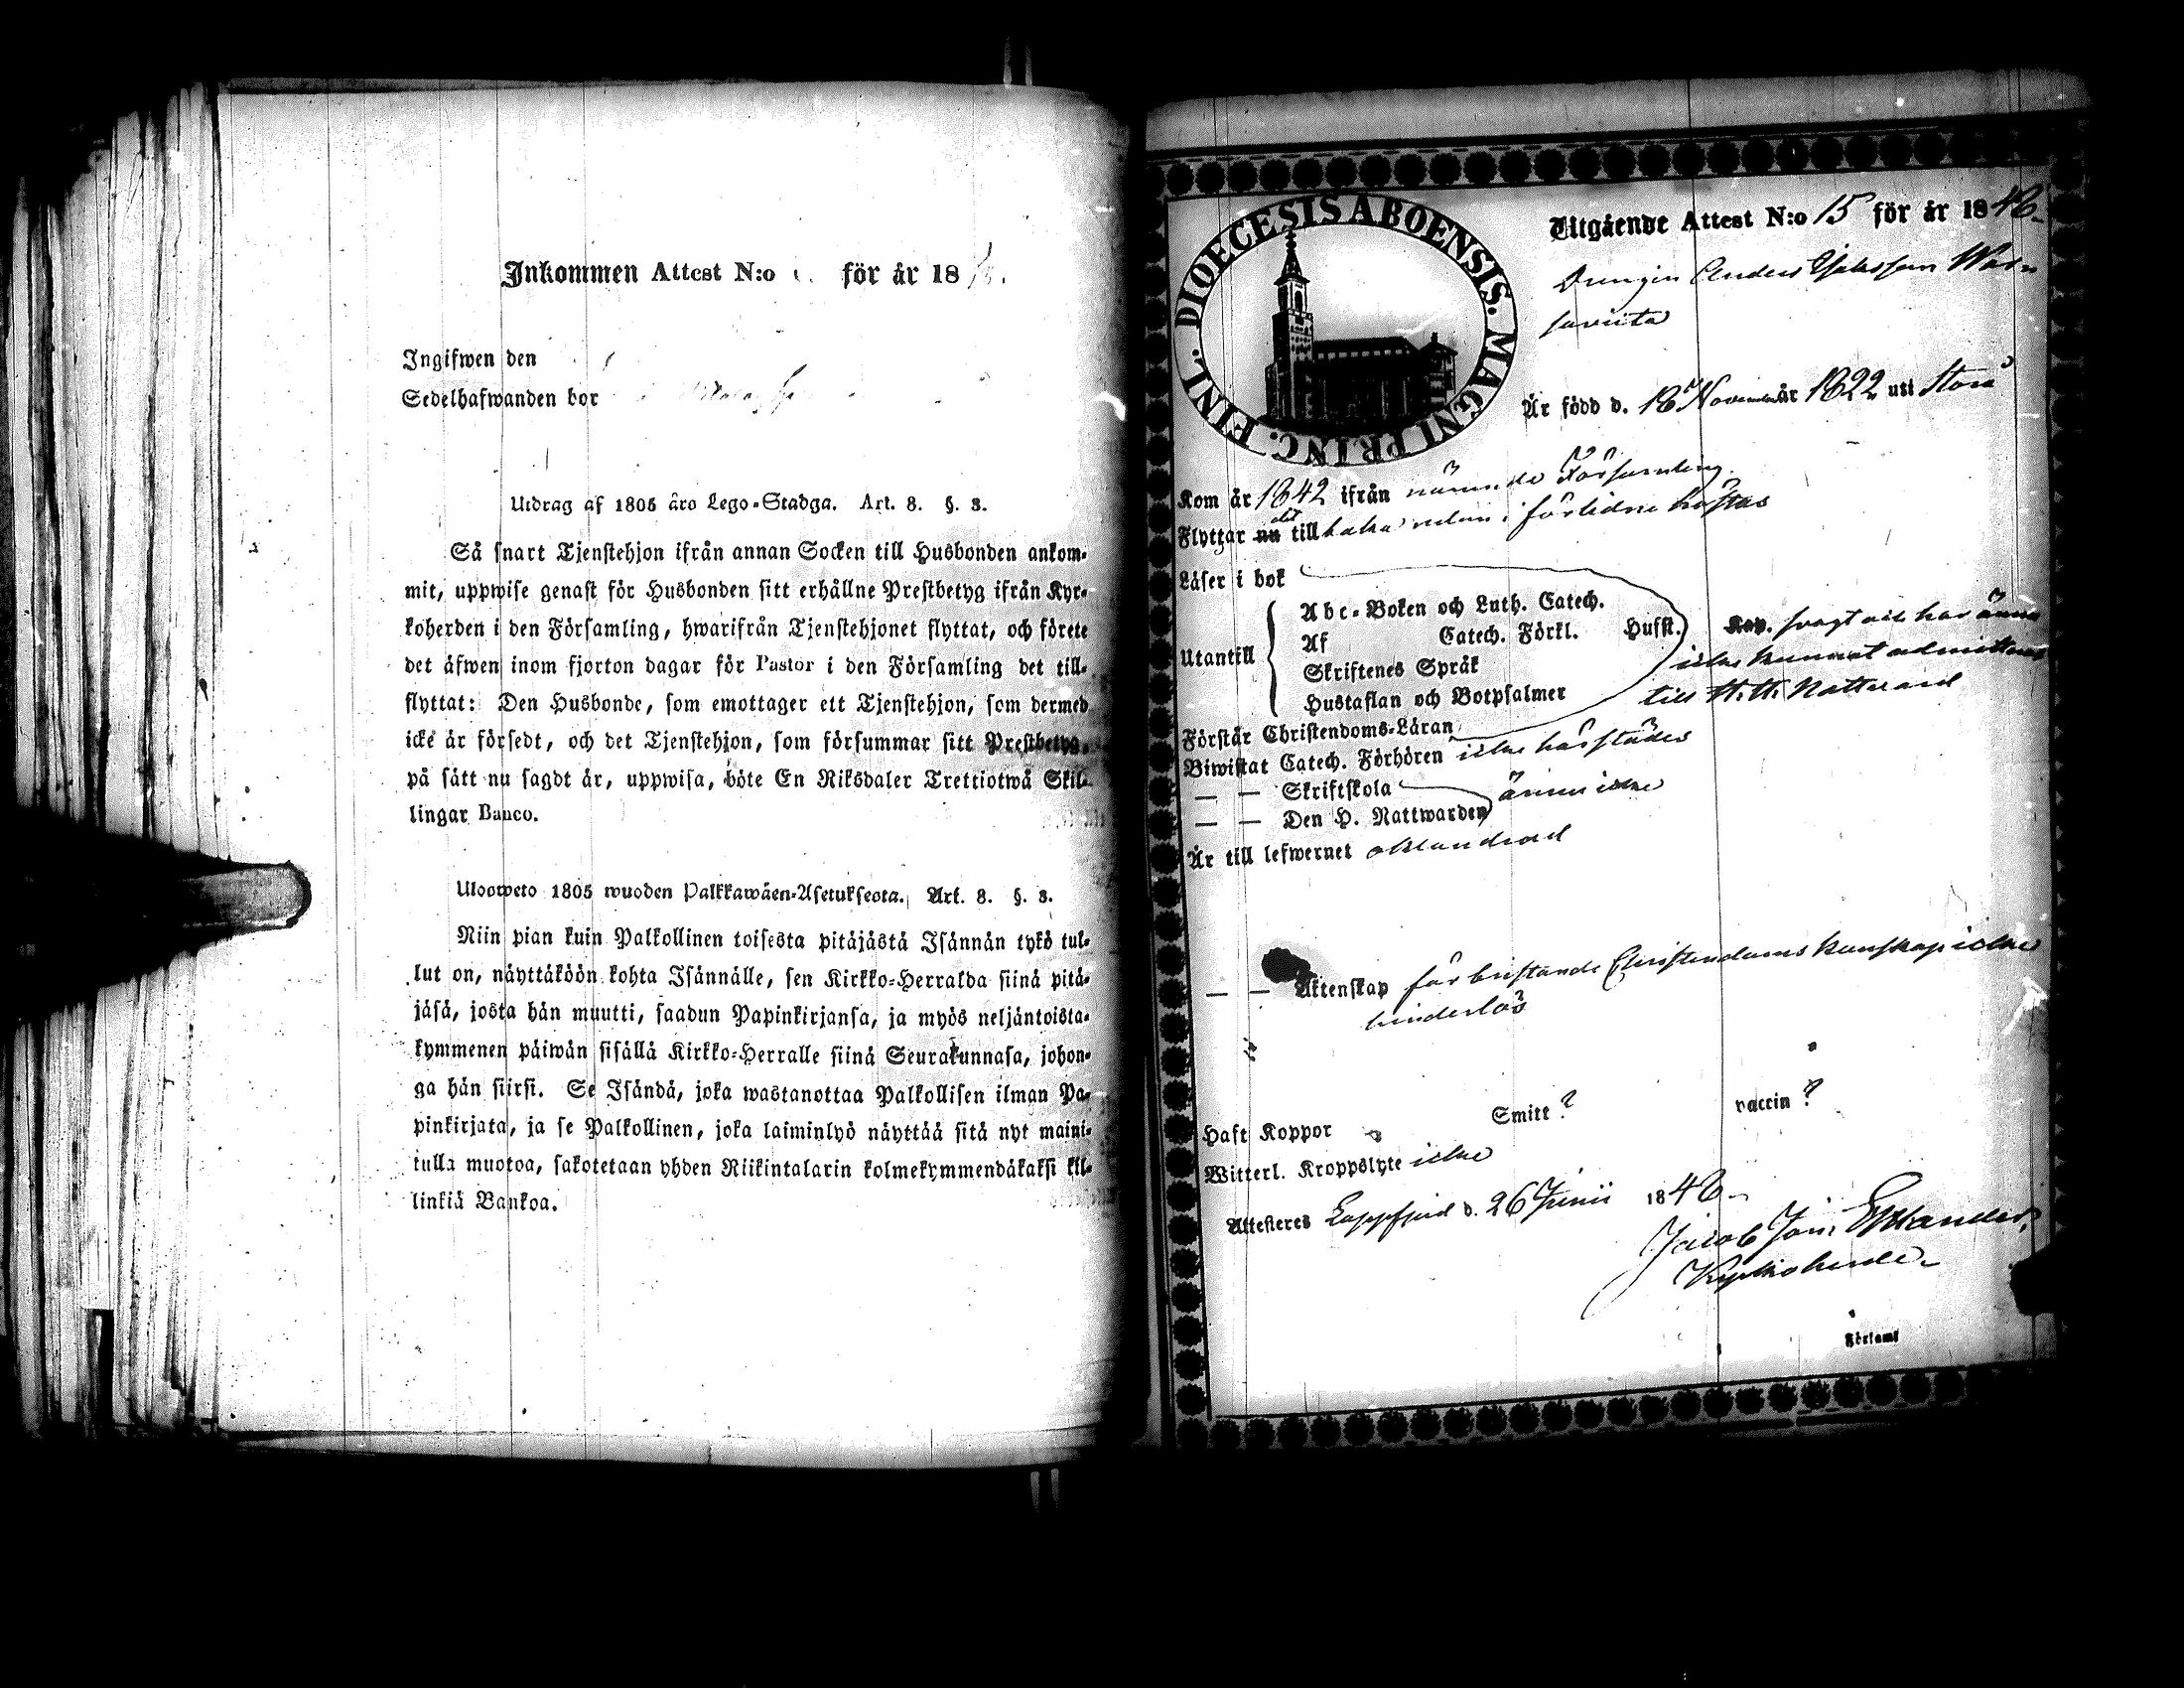 Inkommen Attest N:o för år 18
Ingifwen den
Sedelhafwanden bor
Utdrag af 1805 års Lego-Stadga. Art. 8. §. 3.
Så snart Tjenstehjon ifrån annan Socken till Husbonden ankom-
mit, uppwise genast för Husbonden sitt erhållne Prestbetyg ifrån Kyr-
koherden i den Församling, hwarifrån Tjenstehjonet flyttat, och förete
det äfwen inom fjorton dagar för Pastor i den Församling det till-
flyttat: Den Husbonde, som emottager ett Tjenstehjon, som dermed
icke är försedt, och det Tjenstehjon, som försummar sitt Prestbetyg,
på sätt nu sagdt är, uppwisa, böte En Riksdaler Trettiotwå Skil-
lingar Banco.
Ulosweto 1805 wuoden Palkkawäen-Asetuksesta. Art. 8. §. 3.
Niin pian kuin Palkollinen toisesta pitäjästä Isännän tykö tul-
lut on, näyttäköön kohta Isännälle, sen Kirkko-Herralda siinä pitä-
jäsä, josta hän muutti, saadun Papinkirjansa, ja myös neljäntoista-
kymmenen päiwän sisällä Kirkko-Herralle siinä Seurakunnasa, johon-
ga hän siirsi. Se Isändä, joka wastanottaa Palkollisen ilman Pa-
pinkirjata, ja se Palkollinen, joka laiminlyö näyttää sitä nyt maini-
tulla muotoa, sakotetaan yhden Riikintalarin kolmekymmendäkaksi kil-
linkiä Bankoa.
DIOECESIS ABOENSIS. MAGNI PRINC. FINL.
Utgående Attest N:o 15 för år 1846
Drängen Anders
Är född d. 18 November år 1822 uti Storå
Kom år 1842 ifrån nämnde Församling
Flyttar nu till förlidne höstas
Läser i bok
Utantill
Abc-Boken och Luth. Catech.
Af Catech. Förkl. Hufst. Kap. svagt och har ännu
icke kunnat admitteras
till H. H. Nattvard
Skriftenes Språk
Hustaflan och Botpsalmer
Förstår Christendoms-Läran
Biwistat Catech. Förhören icke härstädes
— — Skriftskola
— — Den H. Nattwarden ännu icke
Är till lefwernet oklandrad
— — Äktenskap för bristande Christendoms kunskap icke
hinderlös
Haft Koppor Smitt ? vaccin ?
Witterl. Kroppslyte icke
Attesteres Lappfjerd d. 26 Junii 1846
Jacob
Kyrkoherde
Förtamt